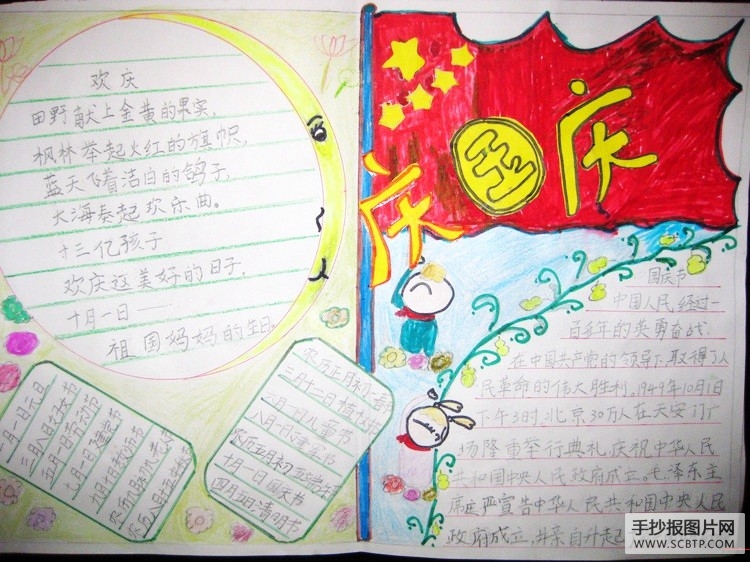 欢庆
田野献上金黄的果实,
枫林举起火红的旗帜,
蓝天飞着洁白的鸽子,
大海奏起欢乐曲。
十三亿孩子
欢庆这美好的日子,
十月一日——
祖国妈妈的生日.
一月一日元旦
三月八日妇女节
五月一日劳动节
七月一日建党节
九月十日教师节
农历九月初九老人节
农历正月初一春节
三月十二日植树节
六月一日儿童节
八月一日建军节
农历五月初五端午节
十月一日国庆节
四月五日清明节
庆国庆
国庆节
中国人民,经过一
百多年的英勇奋战,
在中国共产党的领导下,取得了人
民革命的伟大胜利。1949年10月1日
下午3时,北京30万人在天安门广
场隆重举行典礼,庆祝中华人民
共和国中央人民政府成立。毛泽东主
席庄严宣告中华人民共和国中央人民
政府成立,并亲自升起
手抄报图片网
WWW.SCBTP.COM